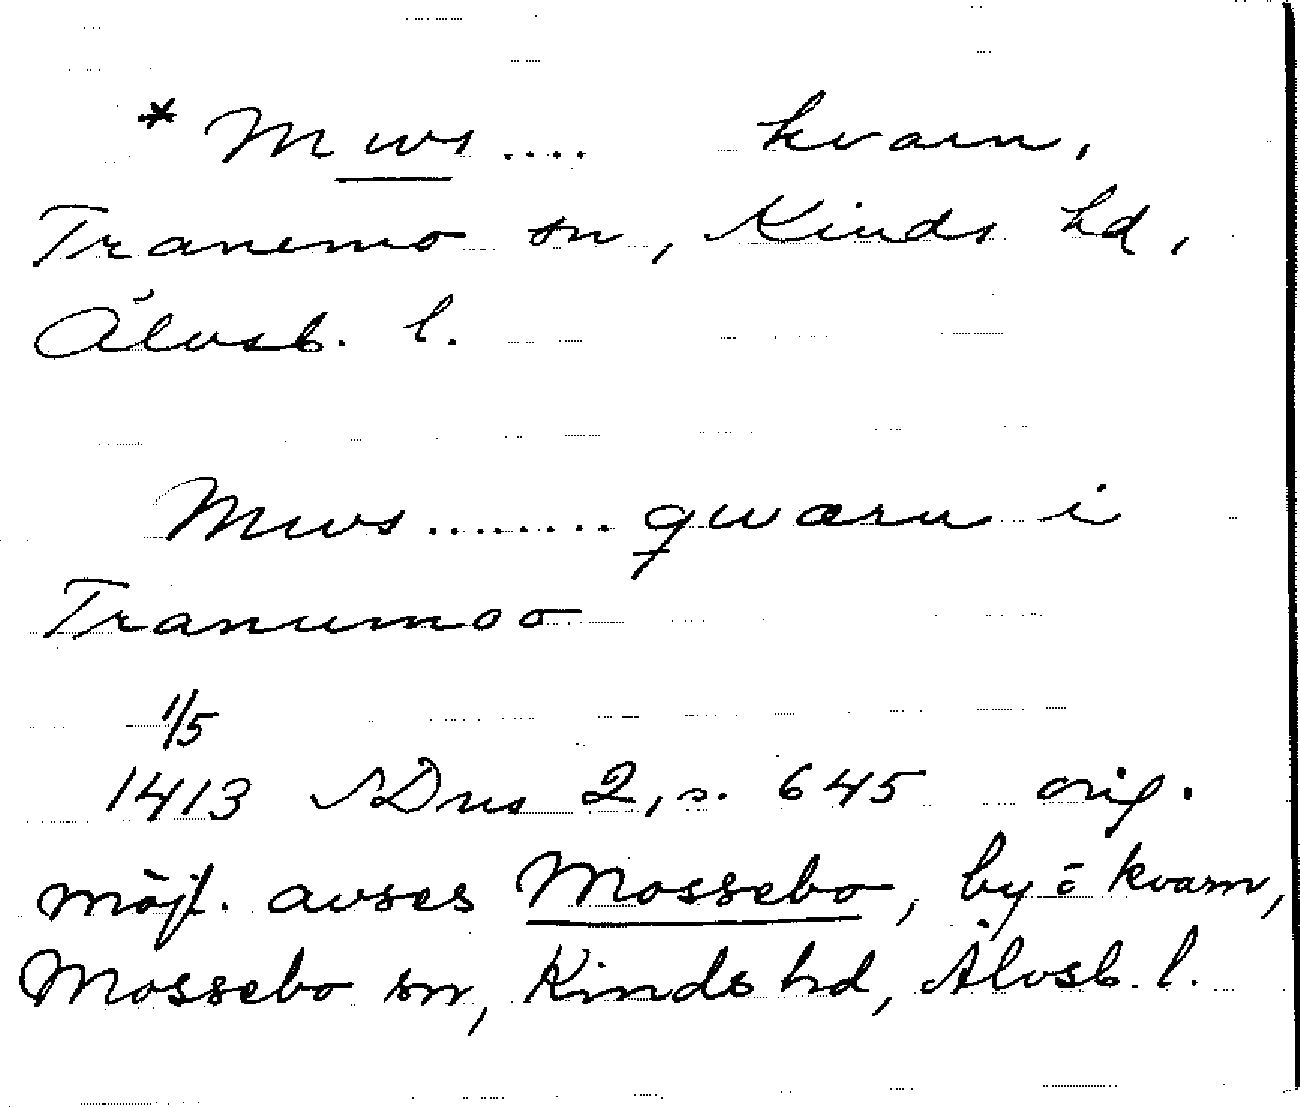 * Mws .... kvarn,
Tranemo sn, Kinds hd,
Älvsb. l.
Mws ........ qwærn i
Tranumoo
1/5
1413 SDns 2, s. 645 orig.
möjl. avses Mossebo, by o kvarn,
Mossebo sn, Kinds hd, Älvsb. l.